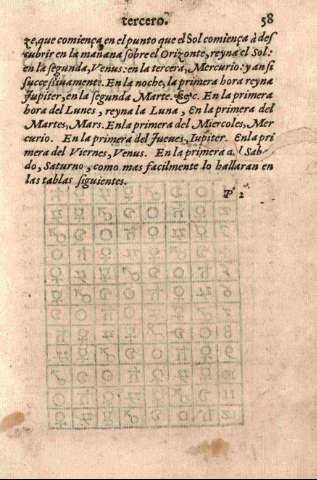 tercero. 58
ze, que comiença en el punto que el Sol comiença à des
cubrir en la mañana sobre el Orizonte, reyna el Sol:
en la segunda, Venus: en la tercera, Mercurio: y ansi
successiuamente. En la noche, la primera hora reyna
Jupiter, en la segunda Marte. &c. En la primera
hora del Lunes, reyna la Luna, En la primera del
Martes, Mars. Enla primera del Miercoles, Mer
curio. En la primera del Jueues, Iupiter. Enla pri
mera del Viernes, Venus. En la primera del Sab-
do, Saturno, como mas facilmente lo hallaran en
las tablas siguientes.
P 2